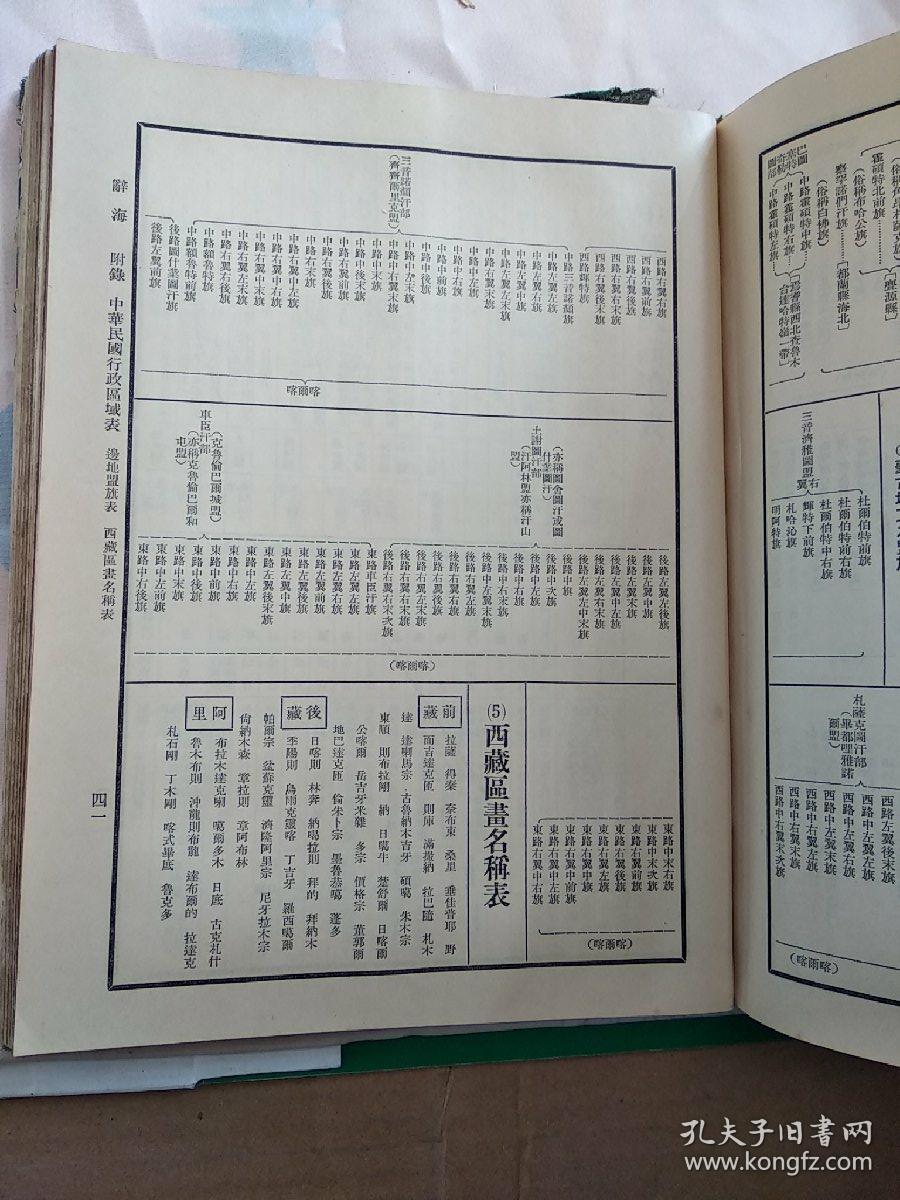 辭海 附錄 中華民國行政區域表 邊地盟旗表 西藏區畫名稱表
四一
西路右翼右旗
西路右翼前旗
西路右翼後旗
西路右翼右末旗
西路右翼後末旗
西路輝特旗
三音諾顏汗部
(齊齊爾里克盟)
中路三音諾顏旗
中路左翼左旗
中路左翼右旗
中路左翼中旗
中路左翼左末旗
中路右翼末旗
中路中後旗
中路中前旗
中路中右旗
中路中左旗
中路中右末旗
中路中左末旗
中路中末旗
中路中後末旗
中路右翼前旗
中路右翼後旗
中路右末旗
中路右翼中末旗
中路右翼左末旗
中路右翼中右旗
中路額魯特前旗
中路額魯特旗
後路圖什業圖汗旗
後路左翼前旗
喀爾喀
土謝圖汗部
(亦稱圖舍圖汗或圖什業圖汗)
(汗阿林盟亦稱汗山盟)
後路左翼後旗
後路左翼左旗
後路左翼中旗
後路左翼末旗
後路左翼中左旗
後路左翼右末旗
後路左翼左中末旗
後路中旗
後路中次旗
後路中左旗
後路中右旗
後路中右末旗
後路中左翼末旗
後路右翼左旗
後路右翼後旗
後路右翼左末旗
後路右翼右末旗
後路右翼右末次旗
車臣汗部
(克魯倫巴爾城盟)
(亦稱克魯倫巴爾和屯盟)
東路車臣汗旗
東路左翼左旗
東路左翼右旗
東路左翼中旗
東路左翼前旗
東路左翼後旗
東路左翼後末旗
東路中左旗
東路中右旗
東路中前旗
東路中後旗
東路中末旗
東路中左前旗
東路中右後旗
(喀爾喀)
東路中末右旗
東路中末次旗
東路右翼後旗
東路右翼前旗
東路右翼左旗
東路右翼中旗
東路右翼中前旗
東路右翼中左旗
東路右翼中右旗
(喀爾喀)
(5)西藏區畫名稱表
前藏
拉薩 得秦 奈布東 桑里 垂佳普耶 野
而吉達克匝 則庫 滿撮納 拉巴隨 札木
達 達喇馬宗 古魯納木吉牙 碩噶 朱木宗
東順 則布拉剛 納 日噶牛 楚舒爾 日喀爾
公喀爾 岳吉牙來雜 多宗 僧格宗 董郭爾
地巴達克匝 倫朱卜宗 墨魯恭噶 蓬多
後藏
日喀則 林奔 納噶拉則 拜的 拜納木
季陽則 烏爾克靈喀 丁吉牙 羅西噶爾
帕爾宗 盆蘇克靈 濟隆阿里宗 尼牙拉木宗
尙納木森 章拉則 章阿布林
阿里
布拉木達克喇 噶爾多木 日底 古克札什
魯木布則 沖龍則布龍 達布爾的 拉達克
札石剛 丁木剛 喀式畢底 魯克多
霍碩特北前旗
察罕諾們汗旗
(俗稱布哈公旗)
(俗稱白佛旗)
「都蘭縣海北」
「亹源縣」
中路霍碩特中旗
中路霍碩特右旗
中路霍碩特左旗
三音濟雅圖盟右翼
杜爾伯特前旗
杜爾伯特前右旗
杜爾伯特中右旗
輝特下前旗
札哈沁旗
明阿特旗
札薩克圖汗部
(畢都哩雅諾爾盟)
西路左翼後末旗
西路中左翼左旗
西路中左翼右旗
西路中左翼末旗
西路右翼末旗
西路右翼末次旗
(喀爾喀)
孔夫子旧书网
www.kongfz.com